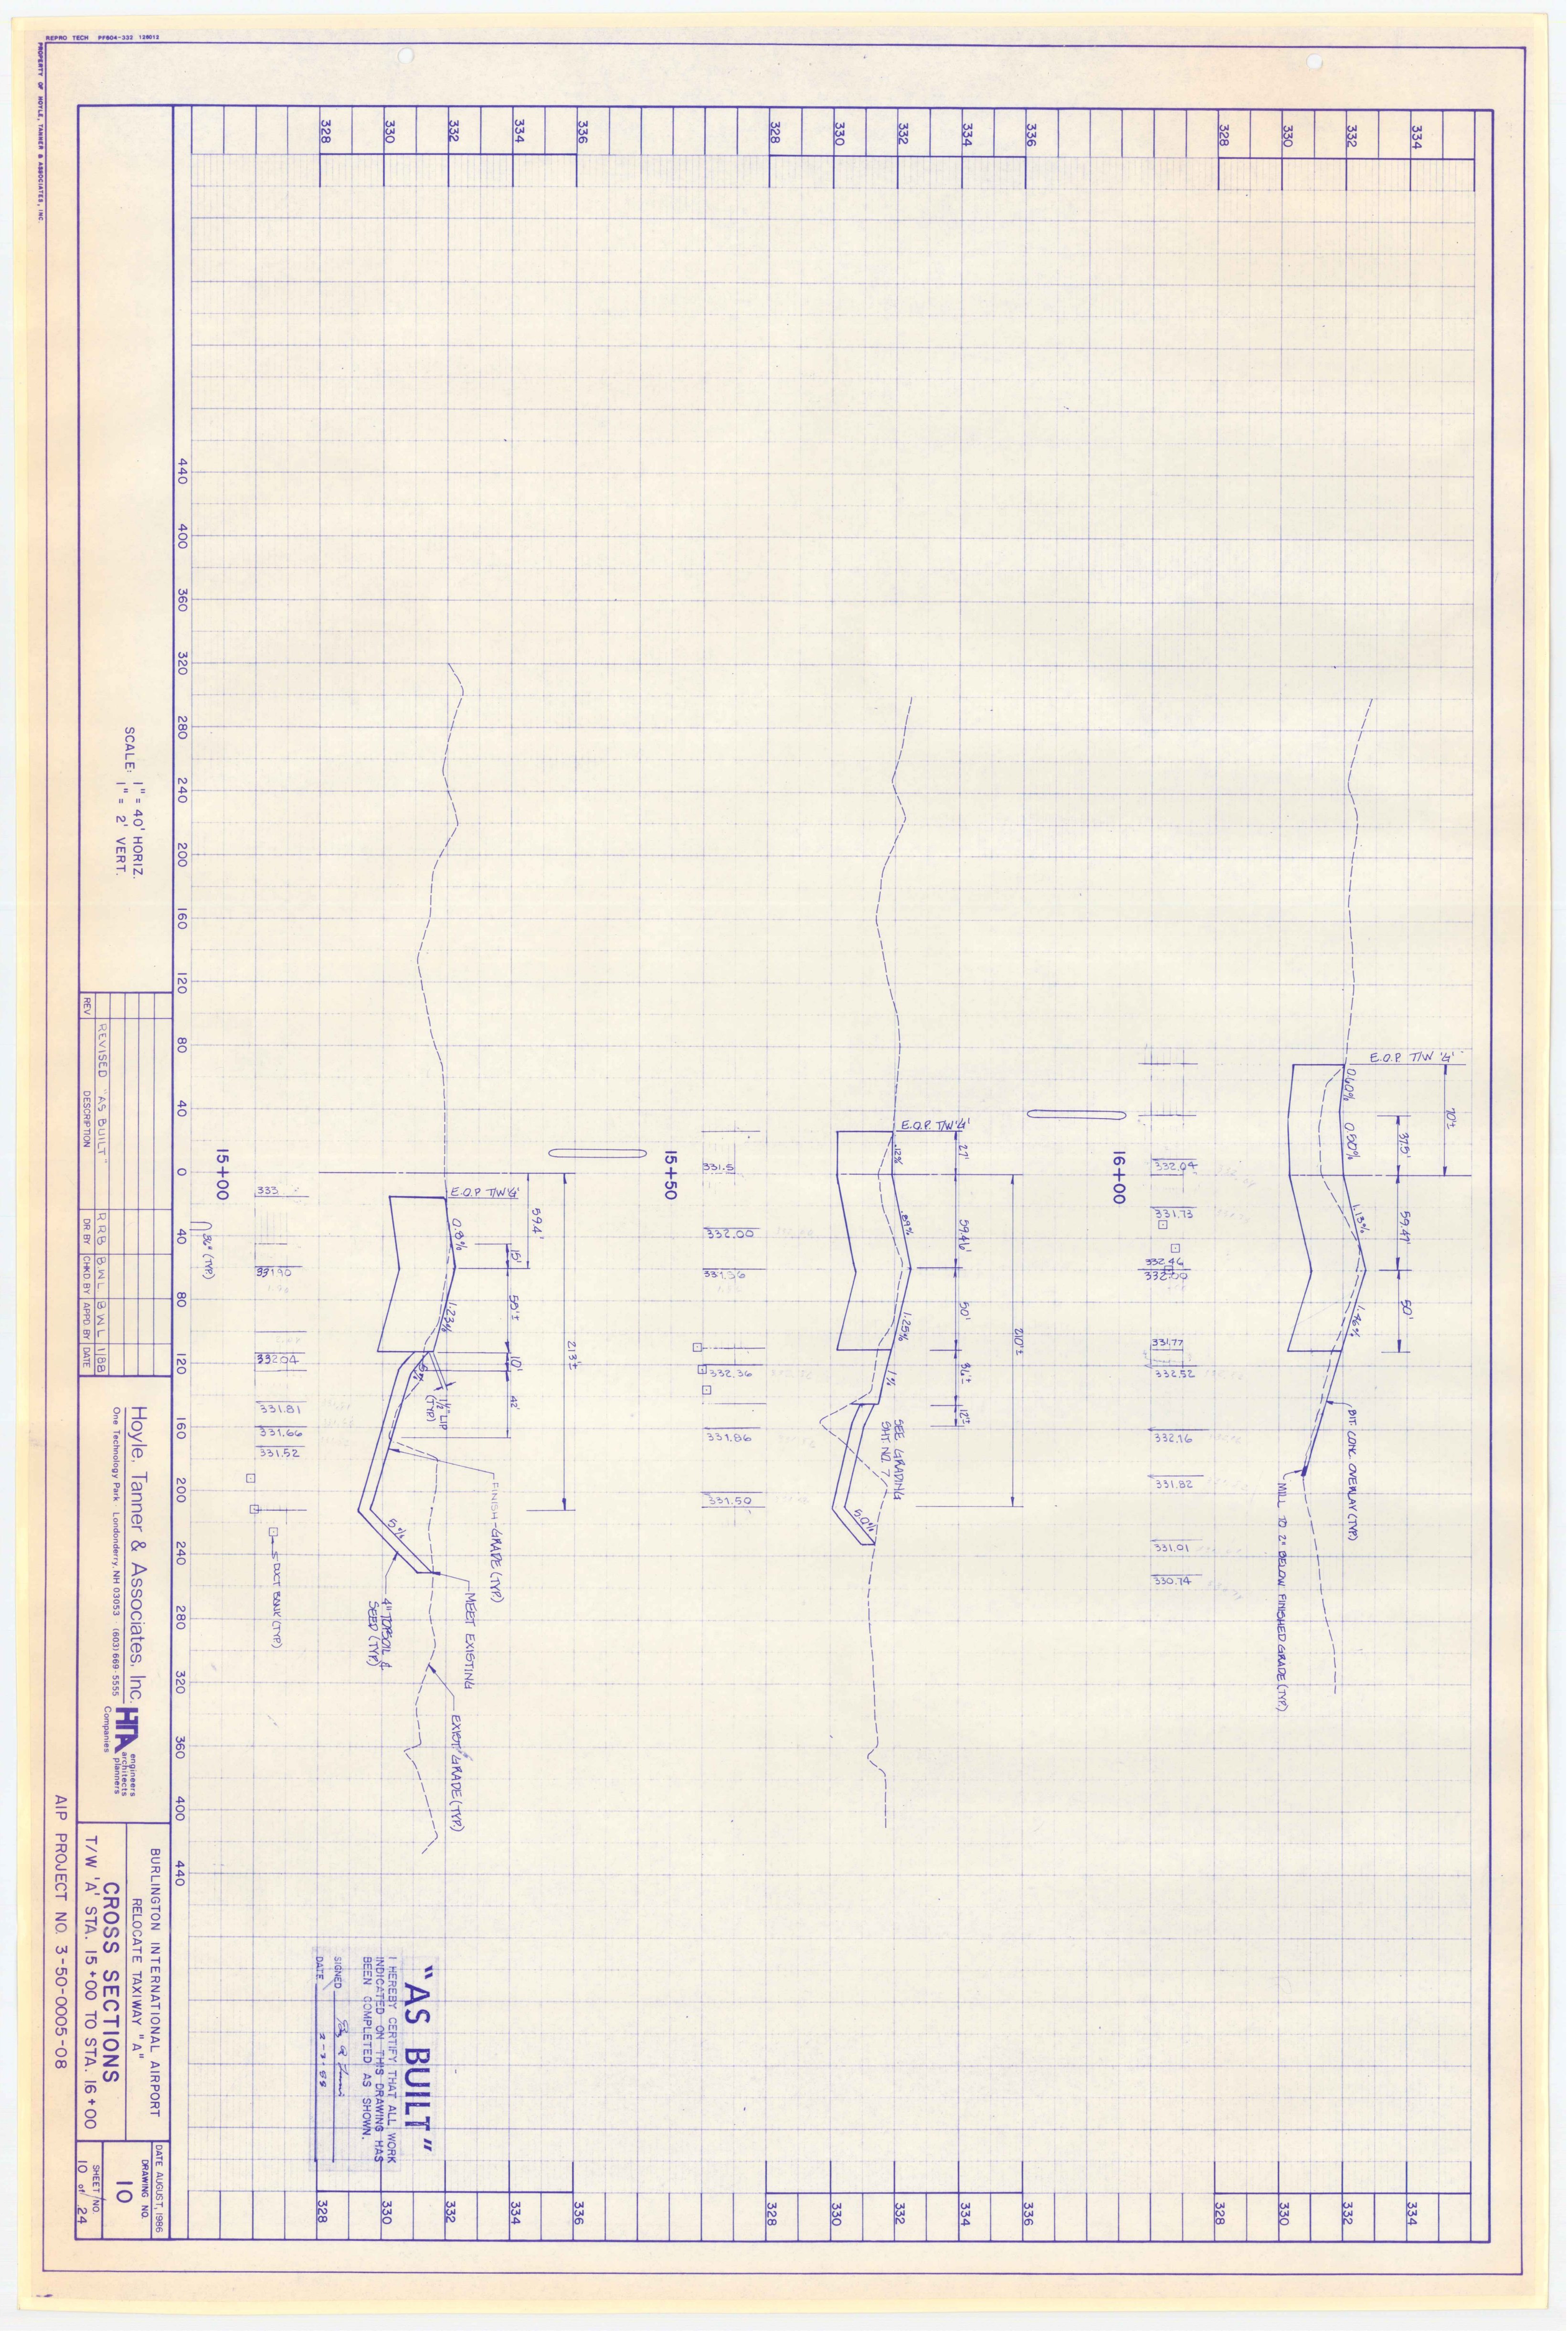 REPRO TECH PF604-332 126012
PROPERTY OF HOYLE, TANNER & ASSOCIATES, INC.
334
332
330
328
E.O.P. T/W 'G'
70'±
37.5'
59.47'
50'
0.60%
0.50%
1.13%
1.96%
BIT. CONC. OVERLAY (TYP.)
MILL TO 2" BELOW FINISHED GRADE (TYP.)
332.04
331.73
332.46
332.00
331.77
332.52
332.16
331.82
331.01
330.74
334
332
330
328
16+00
336
334
332
330
328
E.O.P. T/W 'G'
27'
59.46'
50'
36'±
12'±
210'±
.12%
.89%
1.25%
1%
SEE GRADING
SHT. NO. 7
5.0%
331.5
332.00
331.36
332.36
331.86
331.50
336
334
332
330
328
15+50
336
334
332
330
328
E.O.P. T/W 'G'
59.4'
15'
10'
42'
213'±
0.8%
1.23%
5%
1 1/2" LIP
(TYP.)
5%
FINISH GRADE (TYP.)
MEET EXISTING
EXIST. GRADE (TYP.)
4" TOPSOIL &
SEED (TYP.)
333
331.90
332.04
331.81
331.66
331.52
DUCT BANK (TYP.)
36" (TYP.)
336
334
332
330
328
15+00
440
400
360
320
280
240
200
160
120
80
40
0
40
80
120
160
200
240
280
320
360
400
440
"AS BUILT"
I HEREBY CERTIFY THAT ALL WORK
INDICATED ON THIS DRAWING HAS
BEEN COMPLETED AS SHOWN.
SIGNED
DATE
SCALE: 1" = 40' HORIZ.
1" = 2' VERT.
REVISED "AS BUILT" RRB BWL BWL 1/88
REV DESCRIPTION DR BY CHKD BY APPD BY DATE
Hoyle, Tanner & Associates, Inc.
One Technology Park Londonderry, NH 03053 (603) 669-5555
HTA
engineers
architects
planners
Companies
BURLINGTON INTERNATIONAL AIRPORT
RELOCATE TAXIWAY "A"
CROSS SECTIONS
T/W 'A' STA. 15+00 TO STA. 16+00
DATE AUGUST, 1986
DRAWING NO.
10
SHEET NO.
10 of 24
AIP PROJECT NO. 3-50-0005-08